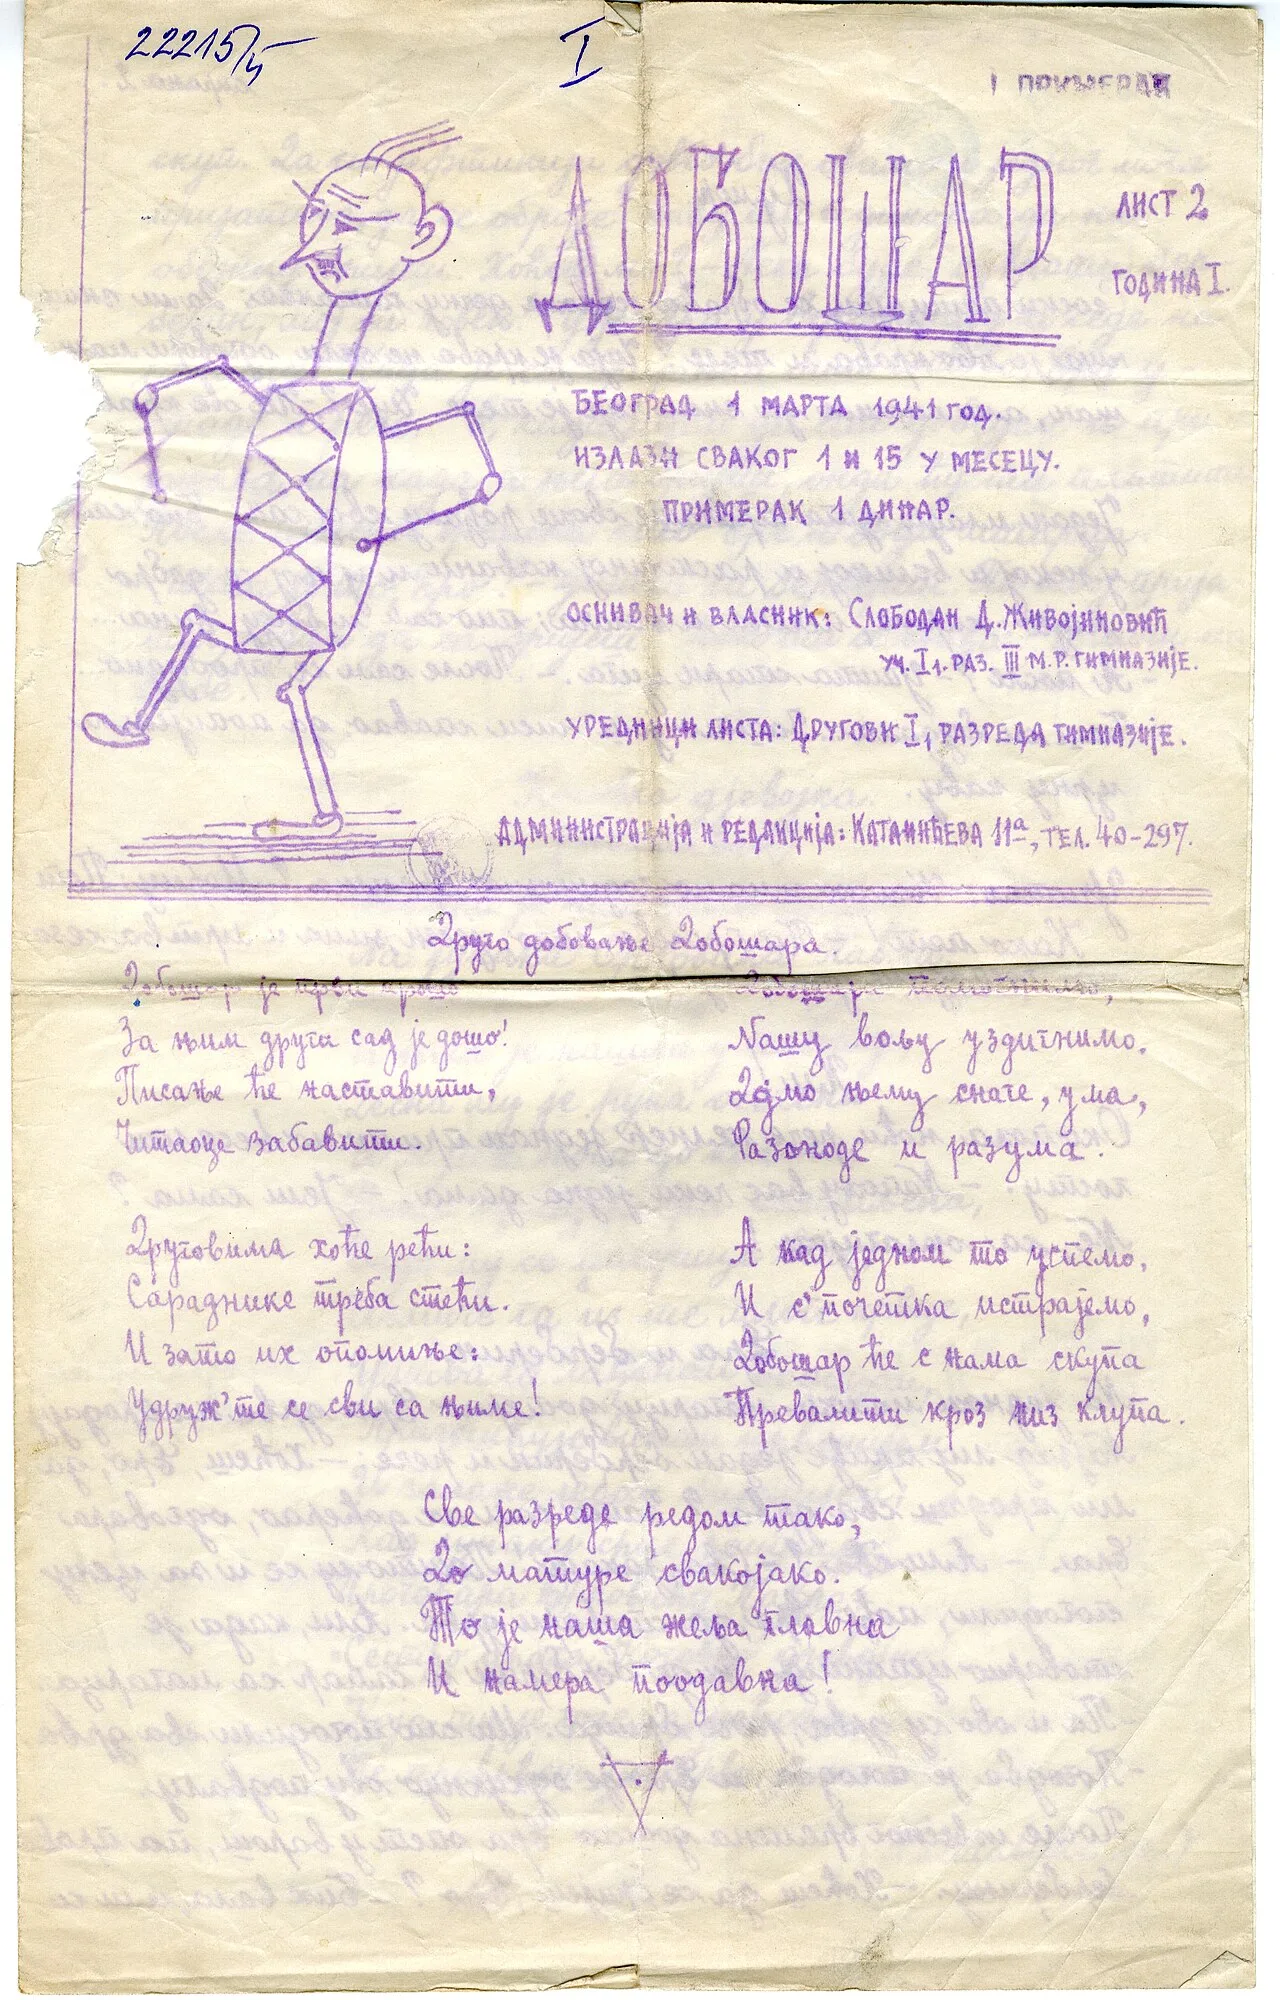 22215/4
I
I ПРИМЕРАК
ДОБОШАР
ЛИСТ 2
ГОДИНА I.
БЕОГРАД 1 МАРТА 1941 ГОД.
ИЗЛАЗИ СВАКОГ 1 И 15 У МЕСЕЦУ.
ПРИМЕРАК 1 ДИНАР.
ОСНИВАЧ И ВЛАСНИК: СЛОБОДАН Д. ЖИВОЈИНОВИЋ
УЧ. I1. РАЗ. III М.Р. ГИМНАЗИЈЕ.
УРЕДНИЦИ ЛИСТА: ДРУГОВИ I1 РАЗРЕДА ГИМНАЗИЈЕ.
АДМИНИСТРАЦИЈА И РЕДАКЦИЈА: КАТАНИЋЕВА 11а, ТЕЛ. 40-297.
Друго добовање Добошара.
Добошар је први прошо
За њим други сад је дошо!
Писање ће наставити,
Читаоце забавити.
Друговима хоће рећи:
Сараднике треба стећи.
И зато их опомиње:
Удруж'те се сви са њиме!
Добошара помогнимо,
Нашу вољу уздигнимо.
Дајмо њему снаге, ума,
Разоноде и разума.
А кад једном то успемо,
И с' почетка истрајемо,
Добошар ће с нама скупа
Превалити кроз низ клупа.
Све разреде редом тако,
До матуре свакојако.
То је наша жеља главна
И намера поодавна!